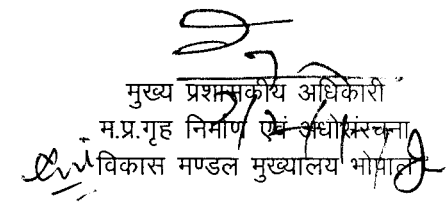 मुख्य प्रशासकीय अधिकारी
म.प्र.गृह निर्माण एवं अधोसंरचना
विकास मण्डल मुख्यालय भोपाल